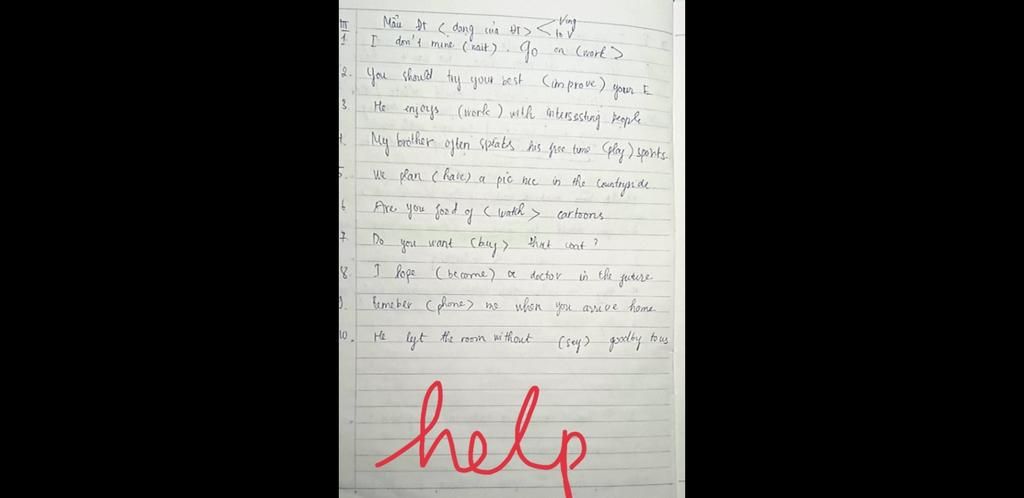 II Mẫu ĐT ( dạng của ĐT > < Ving
to V
1 I don't mine (wait). Go on (work>
2. You should try your best (improve) your E
3 He enjoys (work) with interessting people
4. My brother often speaks his free time (play) sports.
5. We plan (have) a pic nic in the countryside
6 Are you food of (watch> cartoons
7 Do you want (buy> that coat?
8. I hope (become) a doctor in the future
9. Remeber (phone) me when you arrive home.
10. He left the room without (say) goodby to us
help